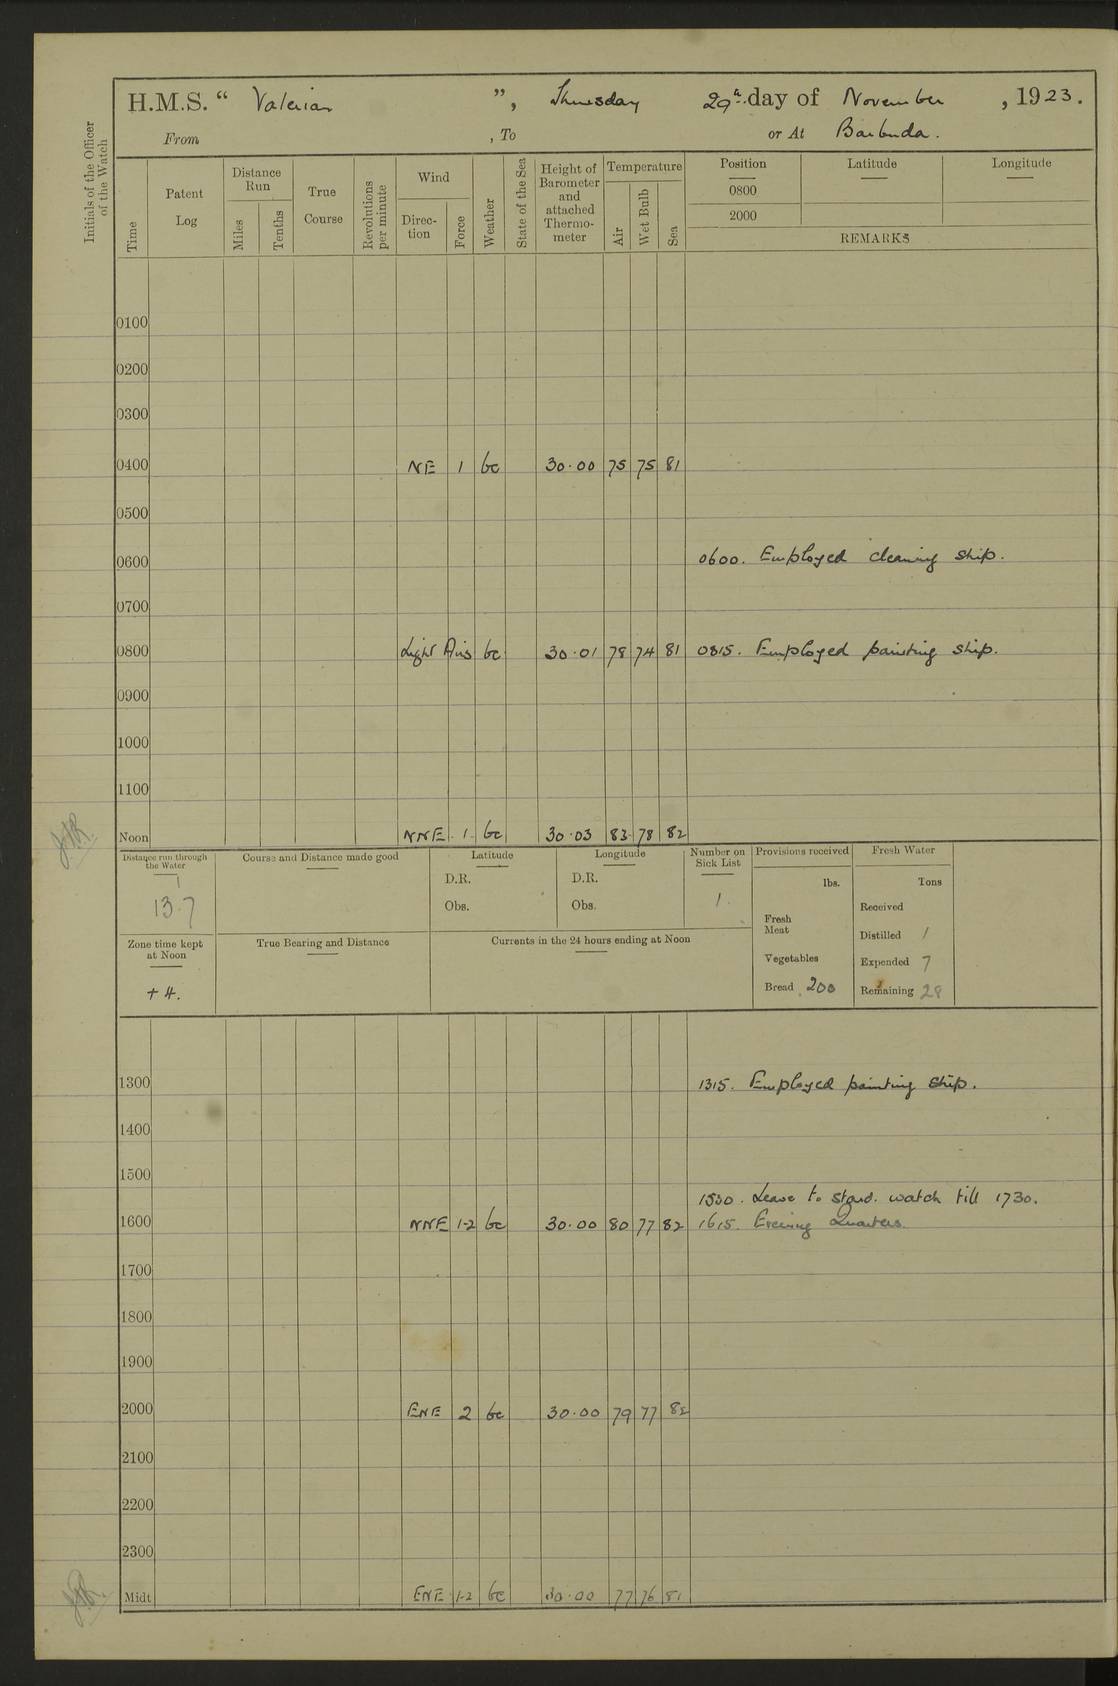 H.M.S. “ Valerian ”, Thursday 29th day of November, 1923.
From , To or At Barbuda.
Initials of the Officer of the Watch
Time
Patent Log
Distance Run
Miles
Tenths
True Course
Revolutions per minute
Wind
Direc-tion
Force
Weather
State of the Sea
Height of Barometer and attached Thermo-meter
Temperature
Air
Wet Bulb
Sea
Position Latitude Longitude
0800
2000
REMARKS
0100
0200
0300
0400 NE 1 bc 30.00 75 75 81
0500
0600 0600. Employed cleaning ship.
0700
0800 Light Airs bc 30.01 78 74 81 0815. Employed painting ship.
0900
1000
1100
Noon NNE 1 bc 30.03 83 78 82
Distance run through the Water
13.7
Course and Distance made good
Latitude
D.R.
Obs.
Longitude
D.R.
Obs.
Number on Sick List
1
Provisions received
lbs.
Fresh Meat
Vegetables
Bread 200
Fresh Water
Tons
Received
Distilled 1
Expended 7
Remaining 28
Zone time kept at Noon
+ 4.
True Bearing and Distance
Currents in the 24 hours ending at Noon
1300 1315. Employed painting ship.
1400
1500
1530. Leave to stbd. watch till 1730.
1600 NNE 1-2 bc 30.00 80 77 82 1615. Evening Quarters
1700
1800
1900
2000 ENE 2 bc 30.00 79 77 82
2100
2200
2300
Midt ENE 1-2 bc 30.00 77 76 81